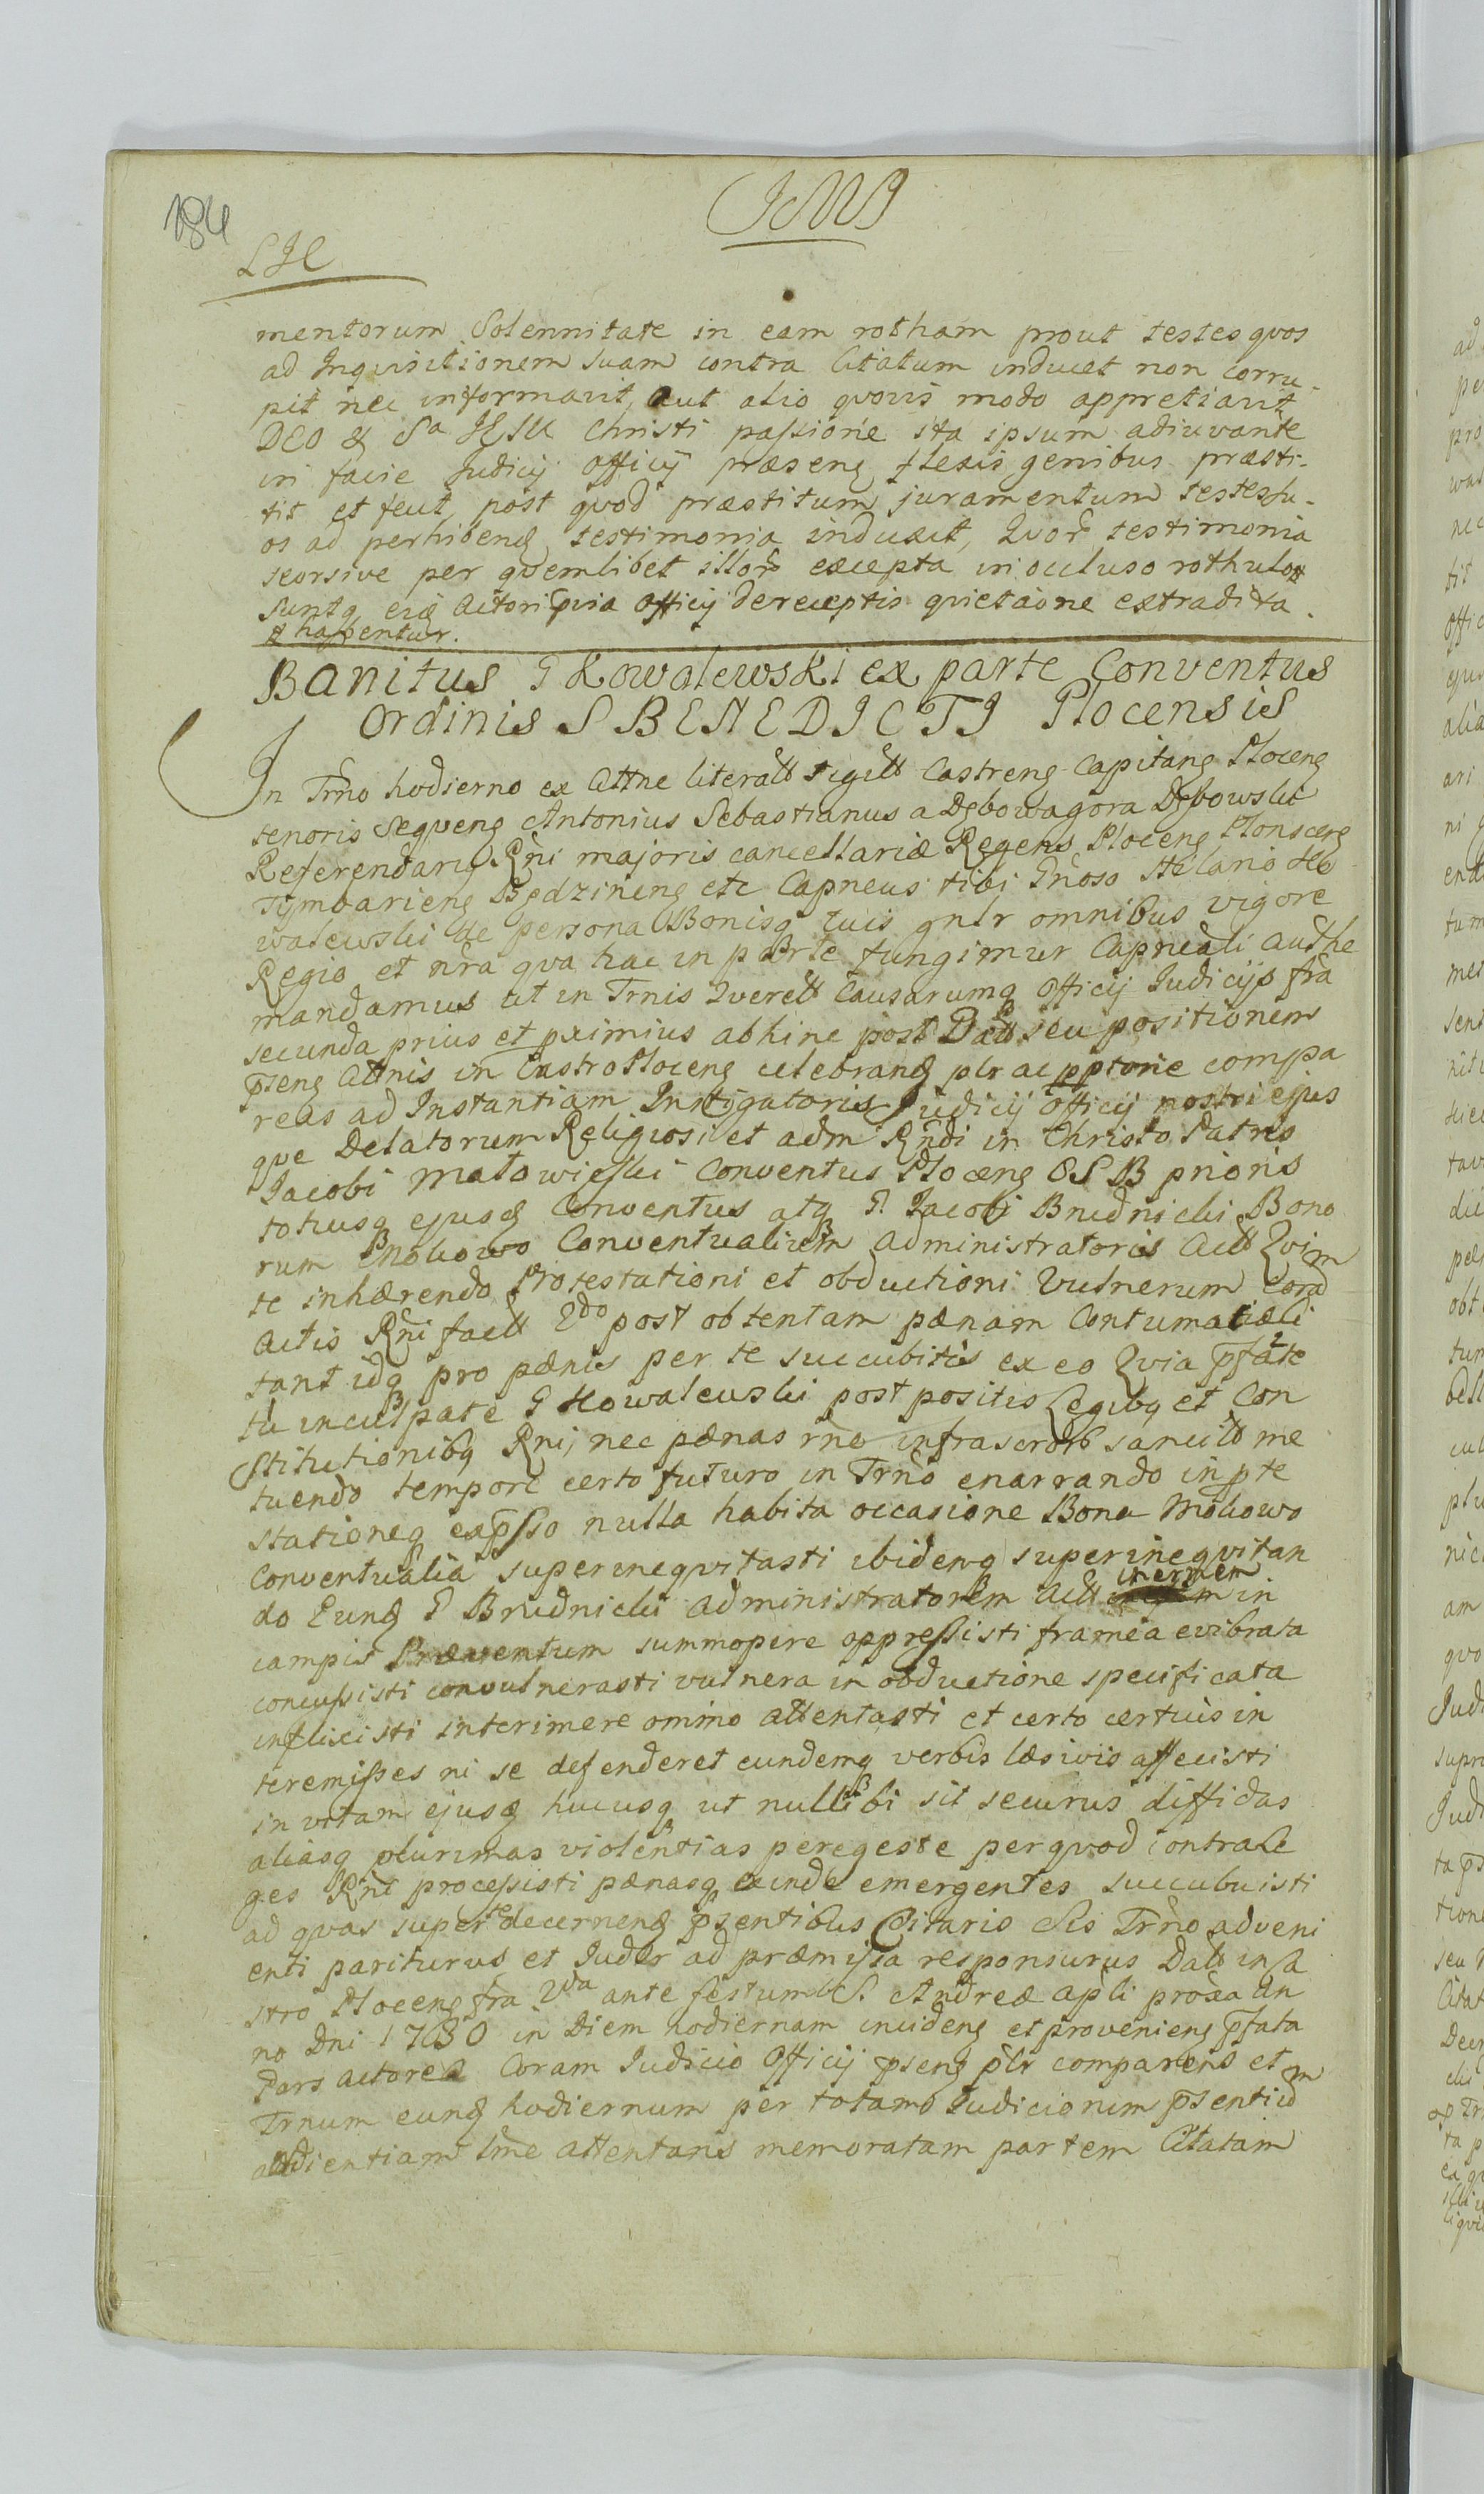 184
JMJ
LJC
mentorum Solennitate in eam rotham prout testes qvos
ad Inqvisitionem suam contra Citatum inducet non corru-
pit nec informavit, aut alio qvovis modo appretiavit
DEO & Sa JESU Christi passione ita ipsum adiuvante
in facie Judicij Officij præseng flexis genibus præsti-
tit et fecit, post qvod præstitum juramentum testes su-
os ad perhibeng testimonia induxit, Qvor testimonia
seorsive per qvemlibet illor excepta in occluso rothulo #
suntq eiq Actori qvia Officij de receptis qvietaone extradita.
# habentur.
Banitus G Kowalewski ex parte Conventus
Ordinis S BENEDICTI Plocensis
In Trno hodierno ex Cttne literall sigill Castreng Capitang Ploceng
tenoris seqveng Antonius Sebastianus a Dębowagora Dębowski
Referendarq Rni majoris cancellariæ Regens, Ploceng Plonsceng
Tymbarieng Będzineng etc Capneus tibi Gnoso Hilario Ko
walewski de persona Bonisq tuis gnlr omnibus vigore
Regio et nra qva hac in parte fungimur Capneali Authe
mandamus ut in Trnis Qverell Causarumq Officij Judicijs fra
secunda prius et pximius abhinc post Dall seu positionem
pseng Cttnis in Castro Ploceng celebrang plr ac pptorie compa
reas ad Instantiam Instigatoris Judicij Officij nostri ejus
qve Delatorum Religiosi et adm Rndi in Christo Patris
Jacobi Matowieski Conventus Ploceng OSB prioris
totiusq ejusq Conventus atq G Jacobi Brudnicki Bono
rum Mokowo Conventualium Administratoris Act Qvi
te inhærendo Protestationi et obductioni Vulnerum Coram
Actis Rni fact 2do post obtentam pænam Contumaciæ Ci
tant idq pro pænis per te succubitis ex eo Qvia pfate
tu inculpate G Kowalewski post positis Legibq et Con
stitutionibq Rni, nec pænas rne infrascrptr sancitt me
tuendo tempore certo futuro in Trno enarrando inpte
stationeq expsso nulla habita occasione Bona Mokowo
Conventualia superineqvitasti ibidemq superineqvitan
do Eung G Brudnicki Administratorem Act inermem in
campis Præventum summopere oppressisti framea evibrata
concussisti convulnerasti vulnera in obductione specificata
inflixisti interimere omino attentasti et certo certius in
teremisses ni se defenderet eundemq verbis læsivis affecisti
in vitam ejusq hucusq ut nullibi sit securus diffidas
aliasq plurimas violentias peregeste per qvod contra Le
ges Rni processisti pænasq exinde emergentes succubuisti
ad qvas super te decerneng psentibus Citaris Sis Trno adveni
enti pariturus et Judlr ad præmissa responsurus Datt in Ca
stro Ploceng fra 2da ante festum S. Andreæ Apli proxa An
no Dni 1730 in Diem hodiernam incideng et provenieng pfata
Pars Actorea Coram Judicio Officij pseng plr comparens et
Trnum eung hodiernum per totam Judiciorum psentium
audientiam lme attentans memoratam partem Citatam